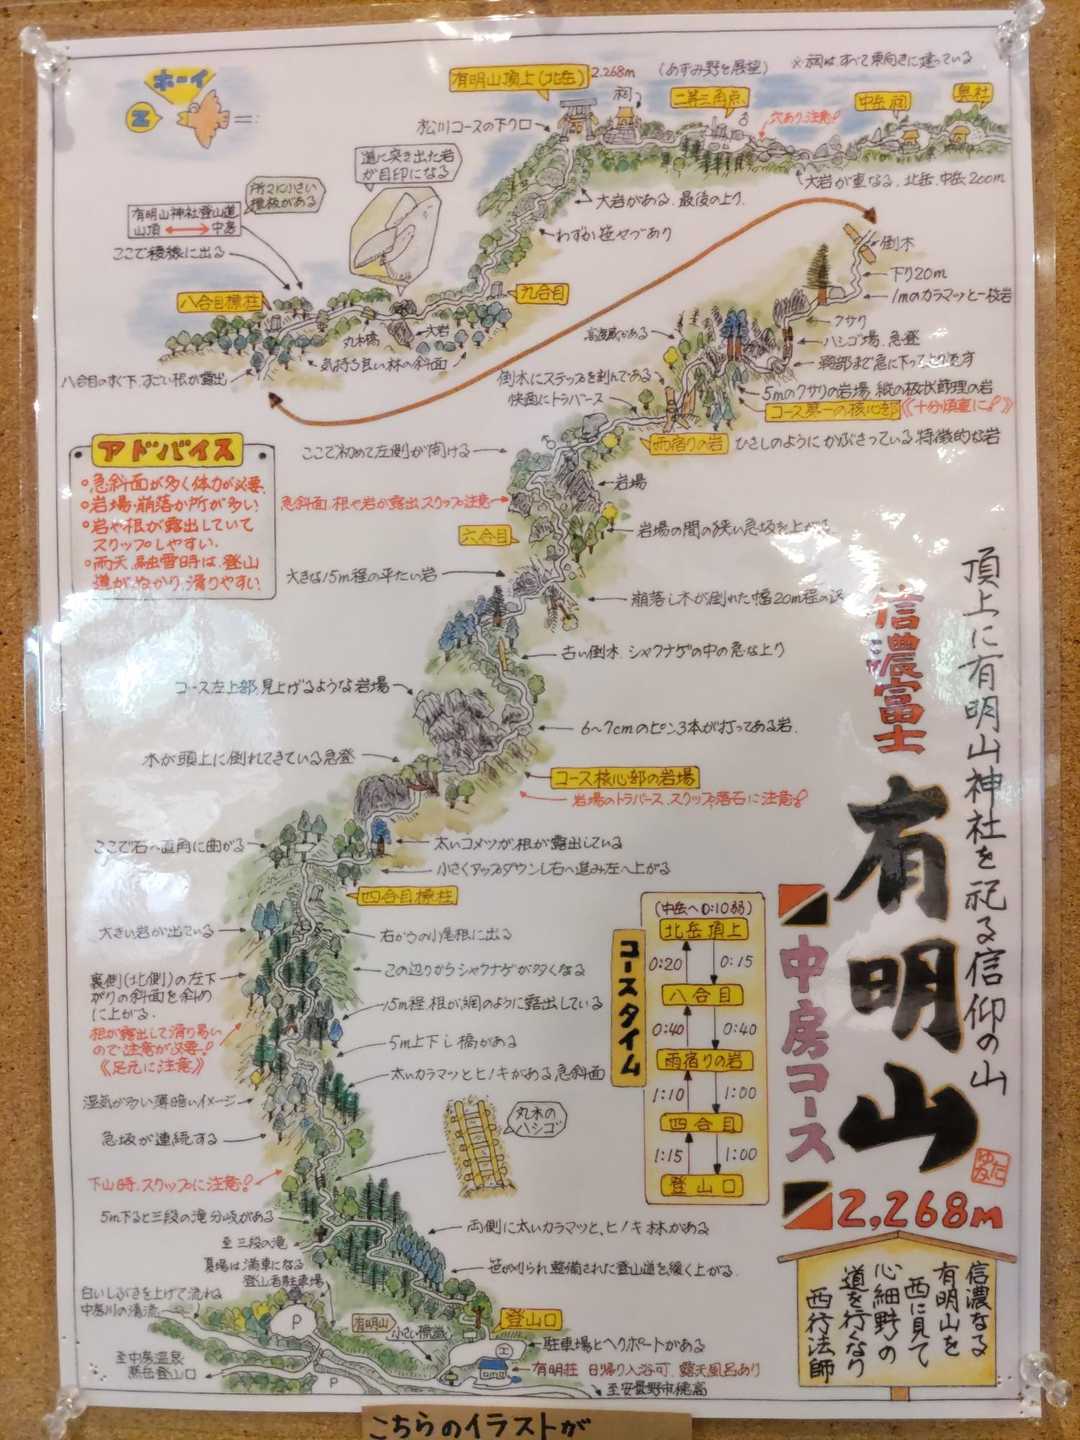 ホーイ
Z
有明山頂上(北岳)
2.268m
(あずみ野を展望)
※祠はすべて東向きに建っている
祠
二等三角点
中岳祠
奥社
穴あり注意!
松川コースの下り口
道に突き出た岩
が目印になる
大岩が重なる.北岳.中岳200m
大岩がある.最後の上り.
わずか笹ヤブあり
所々に小さい
標板がある
有明山神社登山道
山頂 ↔ 中房
ここで稜線に出る
八合目標柱
九合目
丸木橋
大岩
気持ち良い林の斜面
八合目のすぐ下.すごい根が露出
倒木
下り20m
1mのカラマツと一枚岩
クサリ
ハシゴ場.急登
鞍部まで急に下って上り返す
高度感がある
倒木にステップを刻んである
快適にトラバース
5mのクサリの岩場.縦の板状節理の岩
コース第一の核心部
《十分慎重に!》
雨宿りの岩
ひさしのようにかぶさっている特徴的な岩
アドバイス
○急斜面が多く体力が必要.
○岩場.崩落か所が多い.
○岩や根が露出していて
スリップしやすい.
○雨天.融雪時は.登山
道がぬかり.滑りやすい.
ここで初めて左側が開ける
急斜面.根や岩が露出.スリップ注意
岩場
六合目
岩場の間の狭い急坂を上がる
大きな15m程の平たい岩
崩落し木が倒れた幅20m程の沢
古い倒木.シャクナゲの中の急な上り
コース左上部.見上げるような岩場
6~7cmのピン3本が打ってある岩.
木が頭上に倒れてきている急登
コース核心部の岩場
岩場のトラバース.スリップ.落石に注意!
ここで右へ直角に曲がる
太いコメツガ.根が露出している
小さくアップダウンし右へ進み左へ上がる
四合目標柱
大きい岩が出ている
右からの小尾根に出る
この辺りからシャクナゲが多くなる
裏側(北側)の左下
がりの斜面を斜め
に上がる.
根が露出して滑り易い
ので注意が必要!
《足元に注意》
15m程.根が網のように露出している
5m上下し橋がある
太いカラマツとヒノキがある急斜面
湿気が多い薄暗いイメージ
急坂が連続する
丸木の
ハシゴ
下山時.スリップに注意!
5m下ると三段の滝分岐がある
至三段の滝
両側に太いカラマツと.ヒノキ林がある
夏場は満車になる
登山者駐車場
笹が刈られ整備された登山道を緩く上がる.
白いしぶきを上げて流れる
中房川の清流
P
有明山
小さい標識
登山口
駐車場とヘリポートがある
有明荘 日帰り入浴可.露天風呂あり
至中房温泉
燕岳登山口
P
至安曇野市穂高
コースタイム
(中岳へ0:10弱)
北岳頂上
0:20 0:15
八合目
0:40 0:40
雨宿りの岩
1:10 1:00
四合目
1:15 1:00
登山口
頂上に有明山神社を祀る信仰の山
信濃富士
有明山
中房コース
2,268m
信濃なる
有明山を
西に見て
心細野の
道を行くなり
西行法師
こちらのイラストが